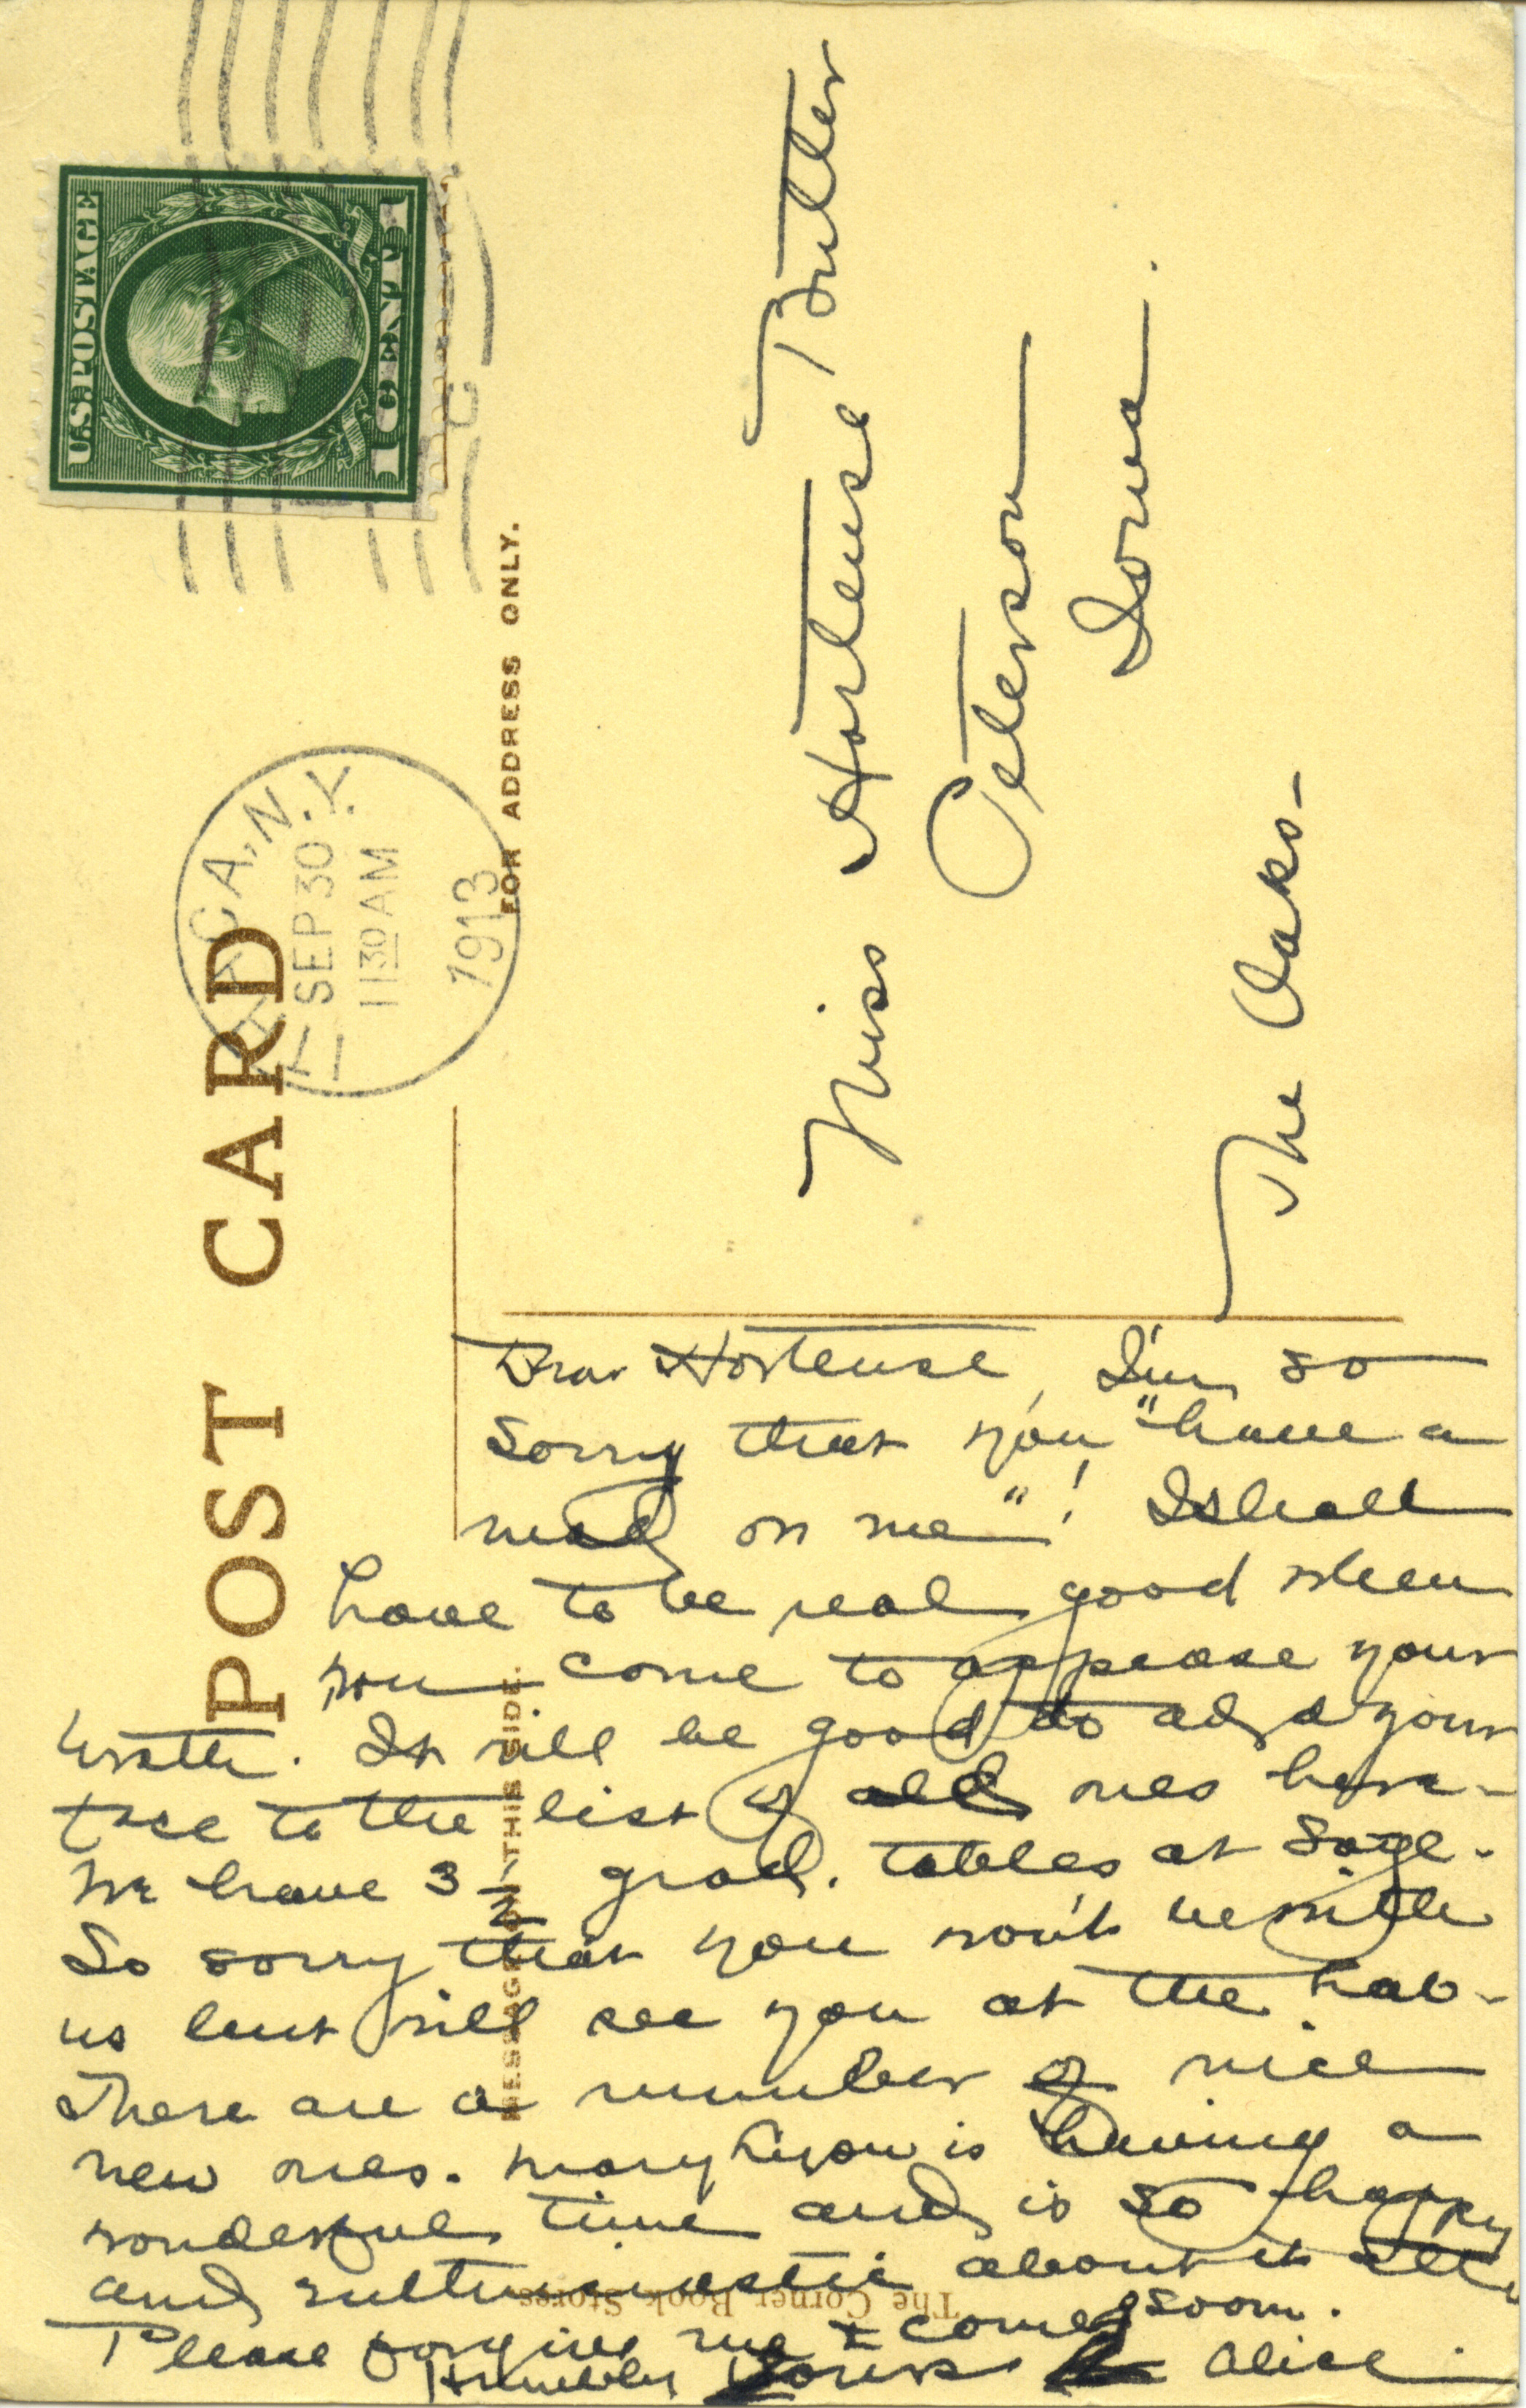 POST CARD
U.S. POSTAGE
1 CENT 1
ITHACA, N.Y.
SEP 30
11 30 AM
1913
FOR ADDRESS ONLY.
Miss Hortense Butler
Peterson
Iowa.
The Oaks-
MESSAGE ON THIS SIDE.
Dear Hortense, I'm so
sorry that you "have a
mad on me"! I shall
have to be real good when
you come to appease your
wrath. It will be good to add your
face to the list of old ones here-
We have 3 1/2 grad. tables at Sage.
So sorry that you won't be with
us but will see you at the lab-
There are a number of nice
new ones. Mary Lyon is having a
wonderful time and is so happy
and enthusiastic about it all
Please forgive me & come soon.
Humbly Yours Alice
The Corner Book Stores